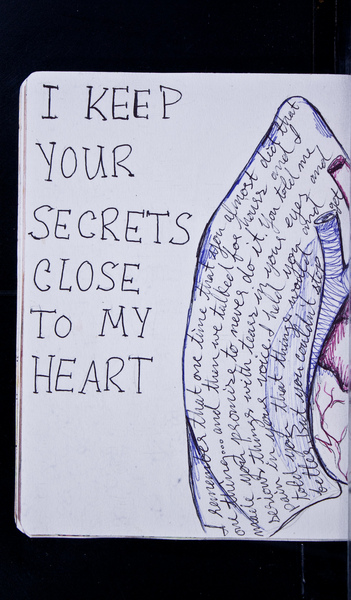 I KEEP
YOUR
SECRETS
CLOSE
TO MY
HEART
I remember that one time that you almost did that
one thing... and then we talked for hours and I
made you promise to never do it. You told me
serious things with tears in your eyes and
pain in your voice. I held you and
told you that things would
be better but you couldn't stop